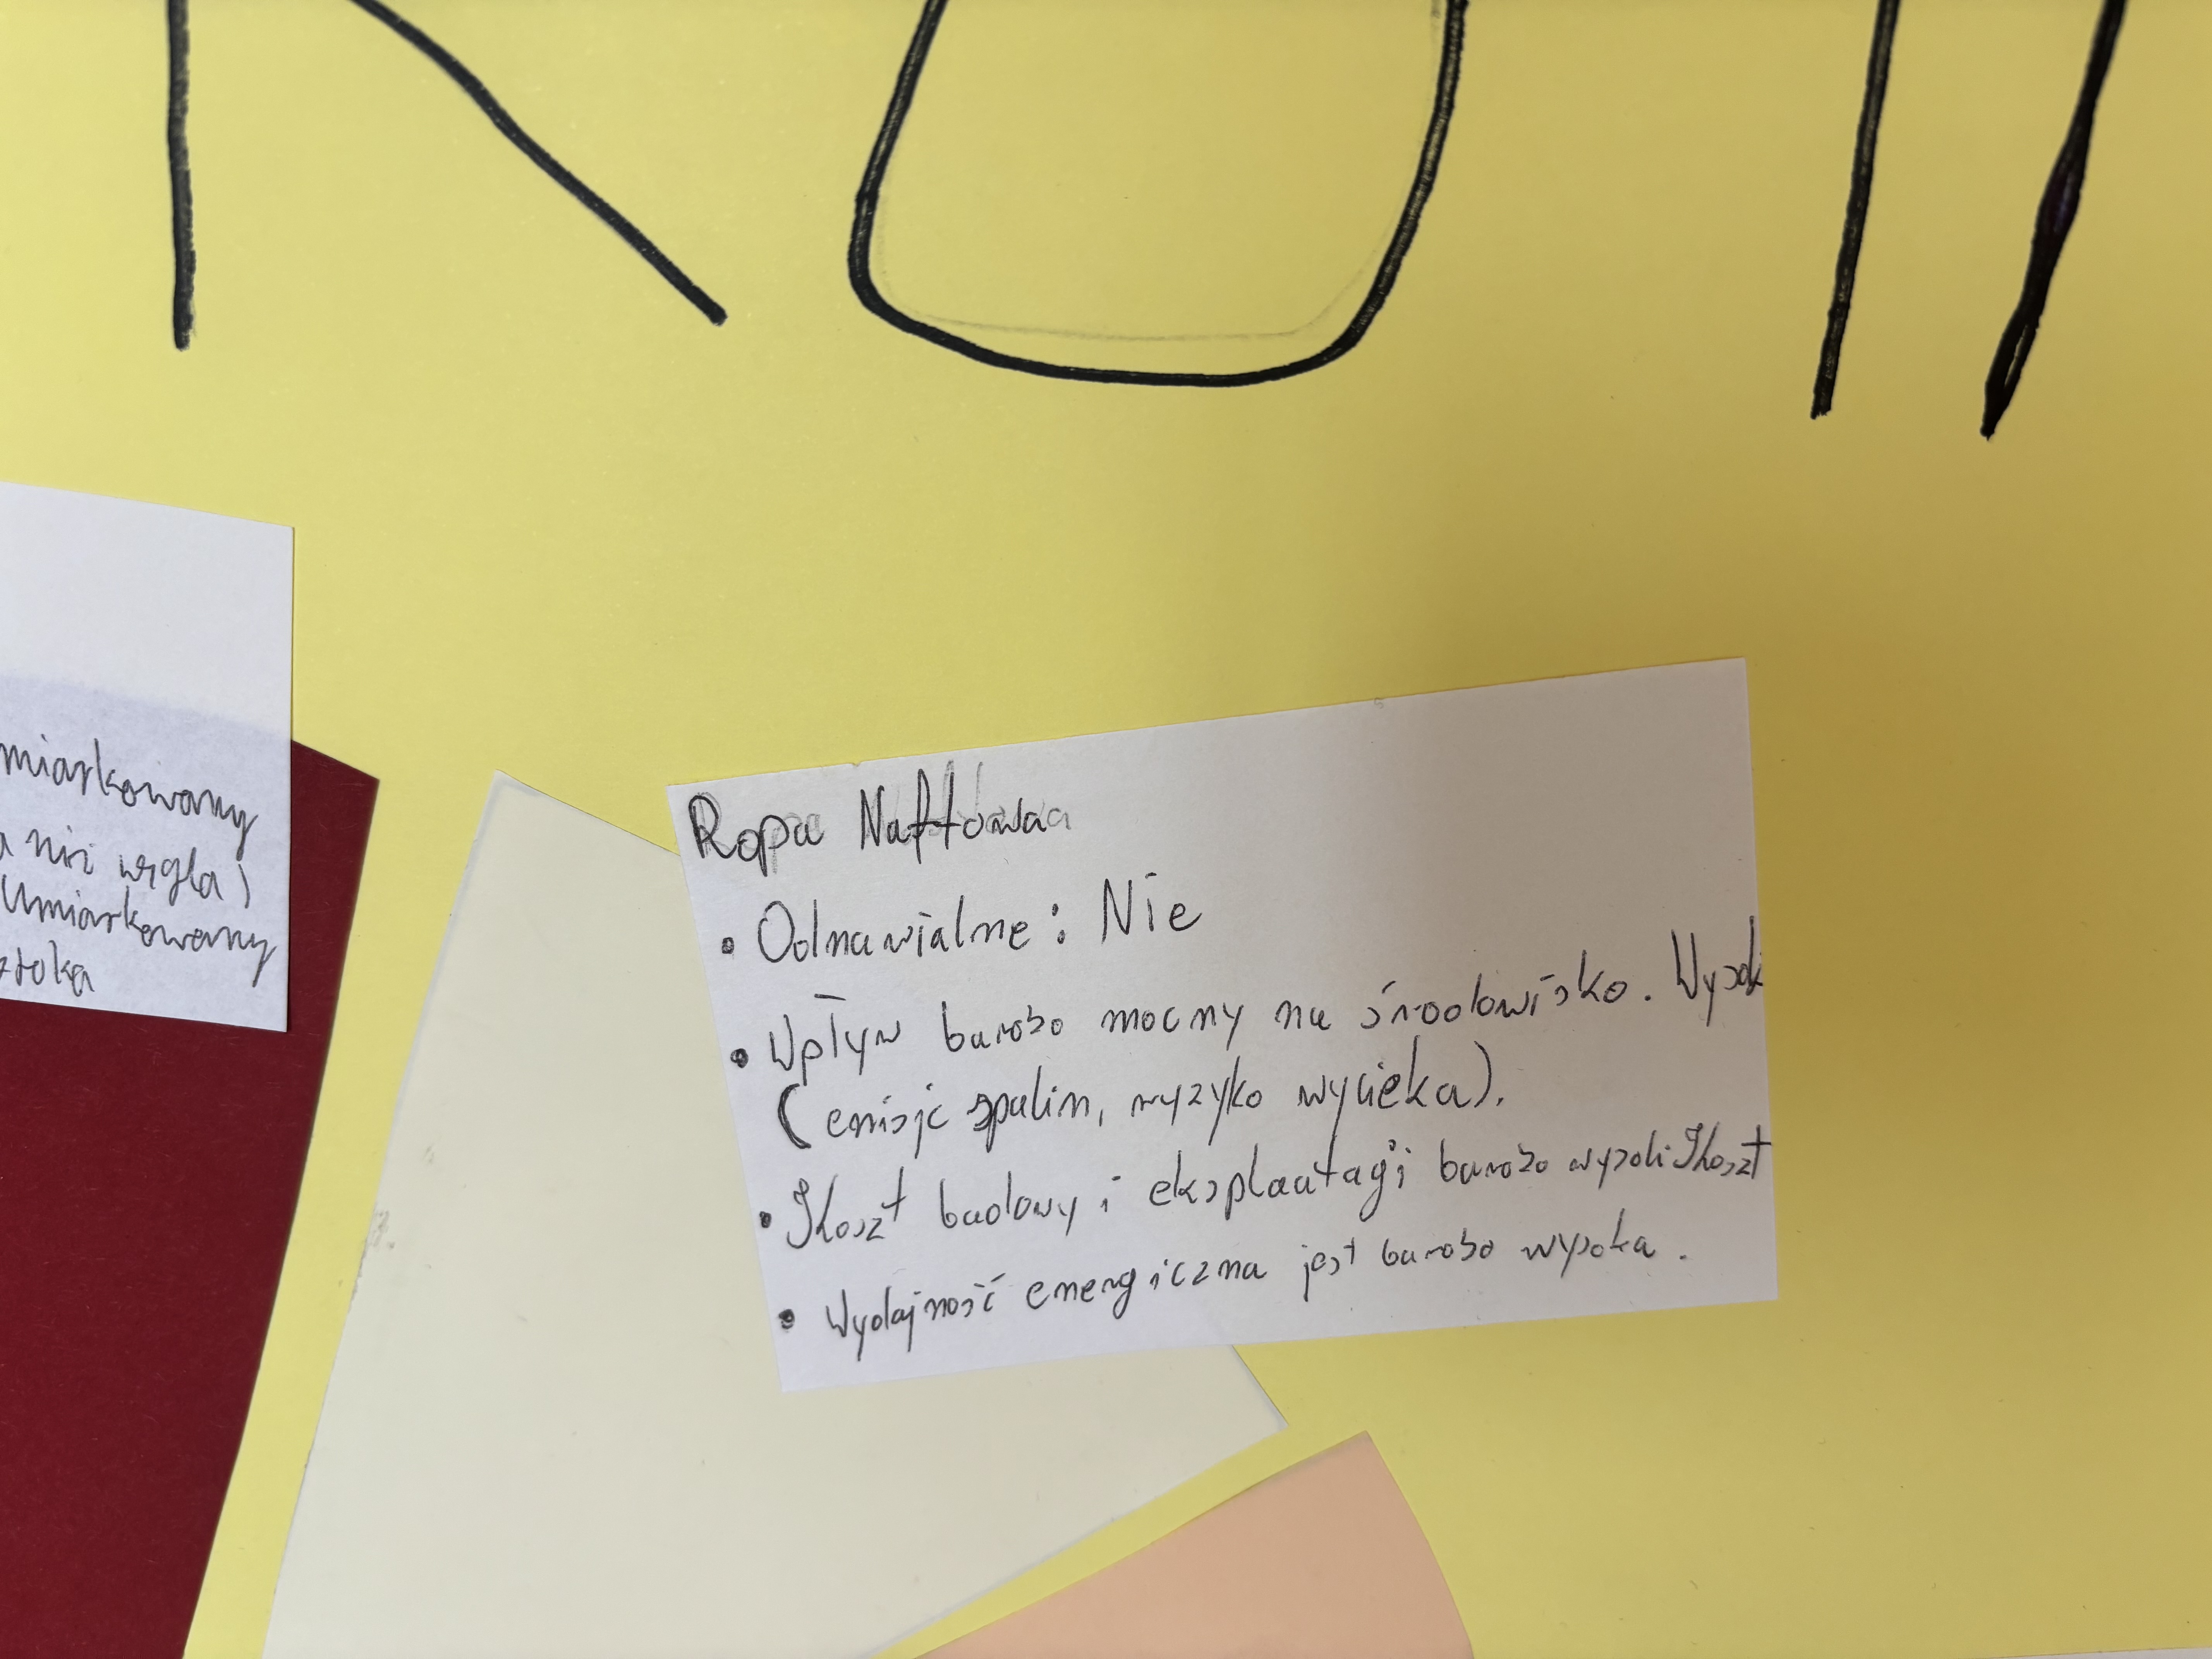 miarkowany
a niż węgla)
Umiarkowany
Ropa Naftowa
• Odnawialne: Nie
• Wpływ bardzo mocny na środowisko. Wysok
(emisje spalin, ryzyko wycieka).
• Koszt budowy i eksplaatacji bardzo wysoki Koszt
• Wydajność energiczna jest bardzo wysoka.